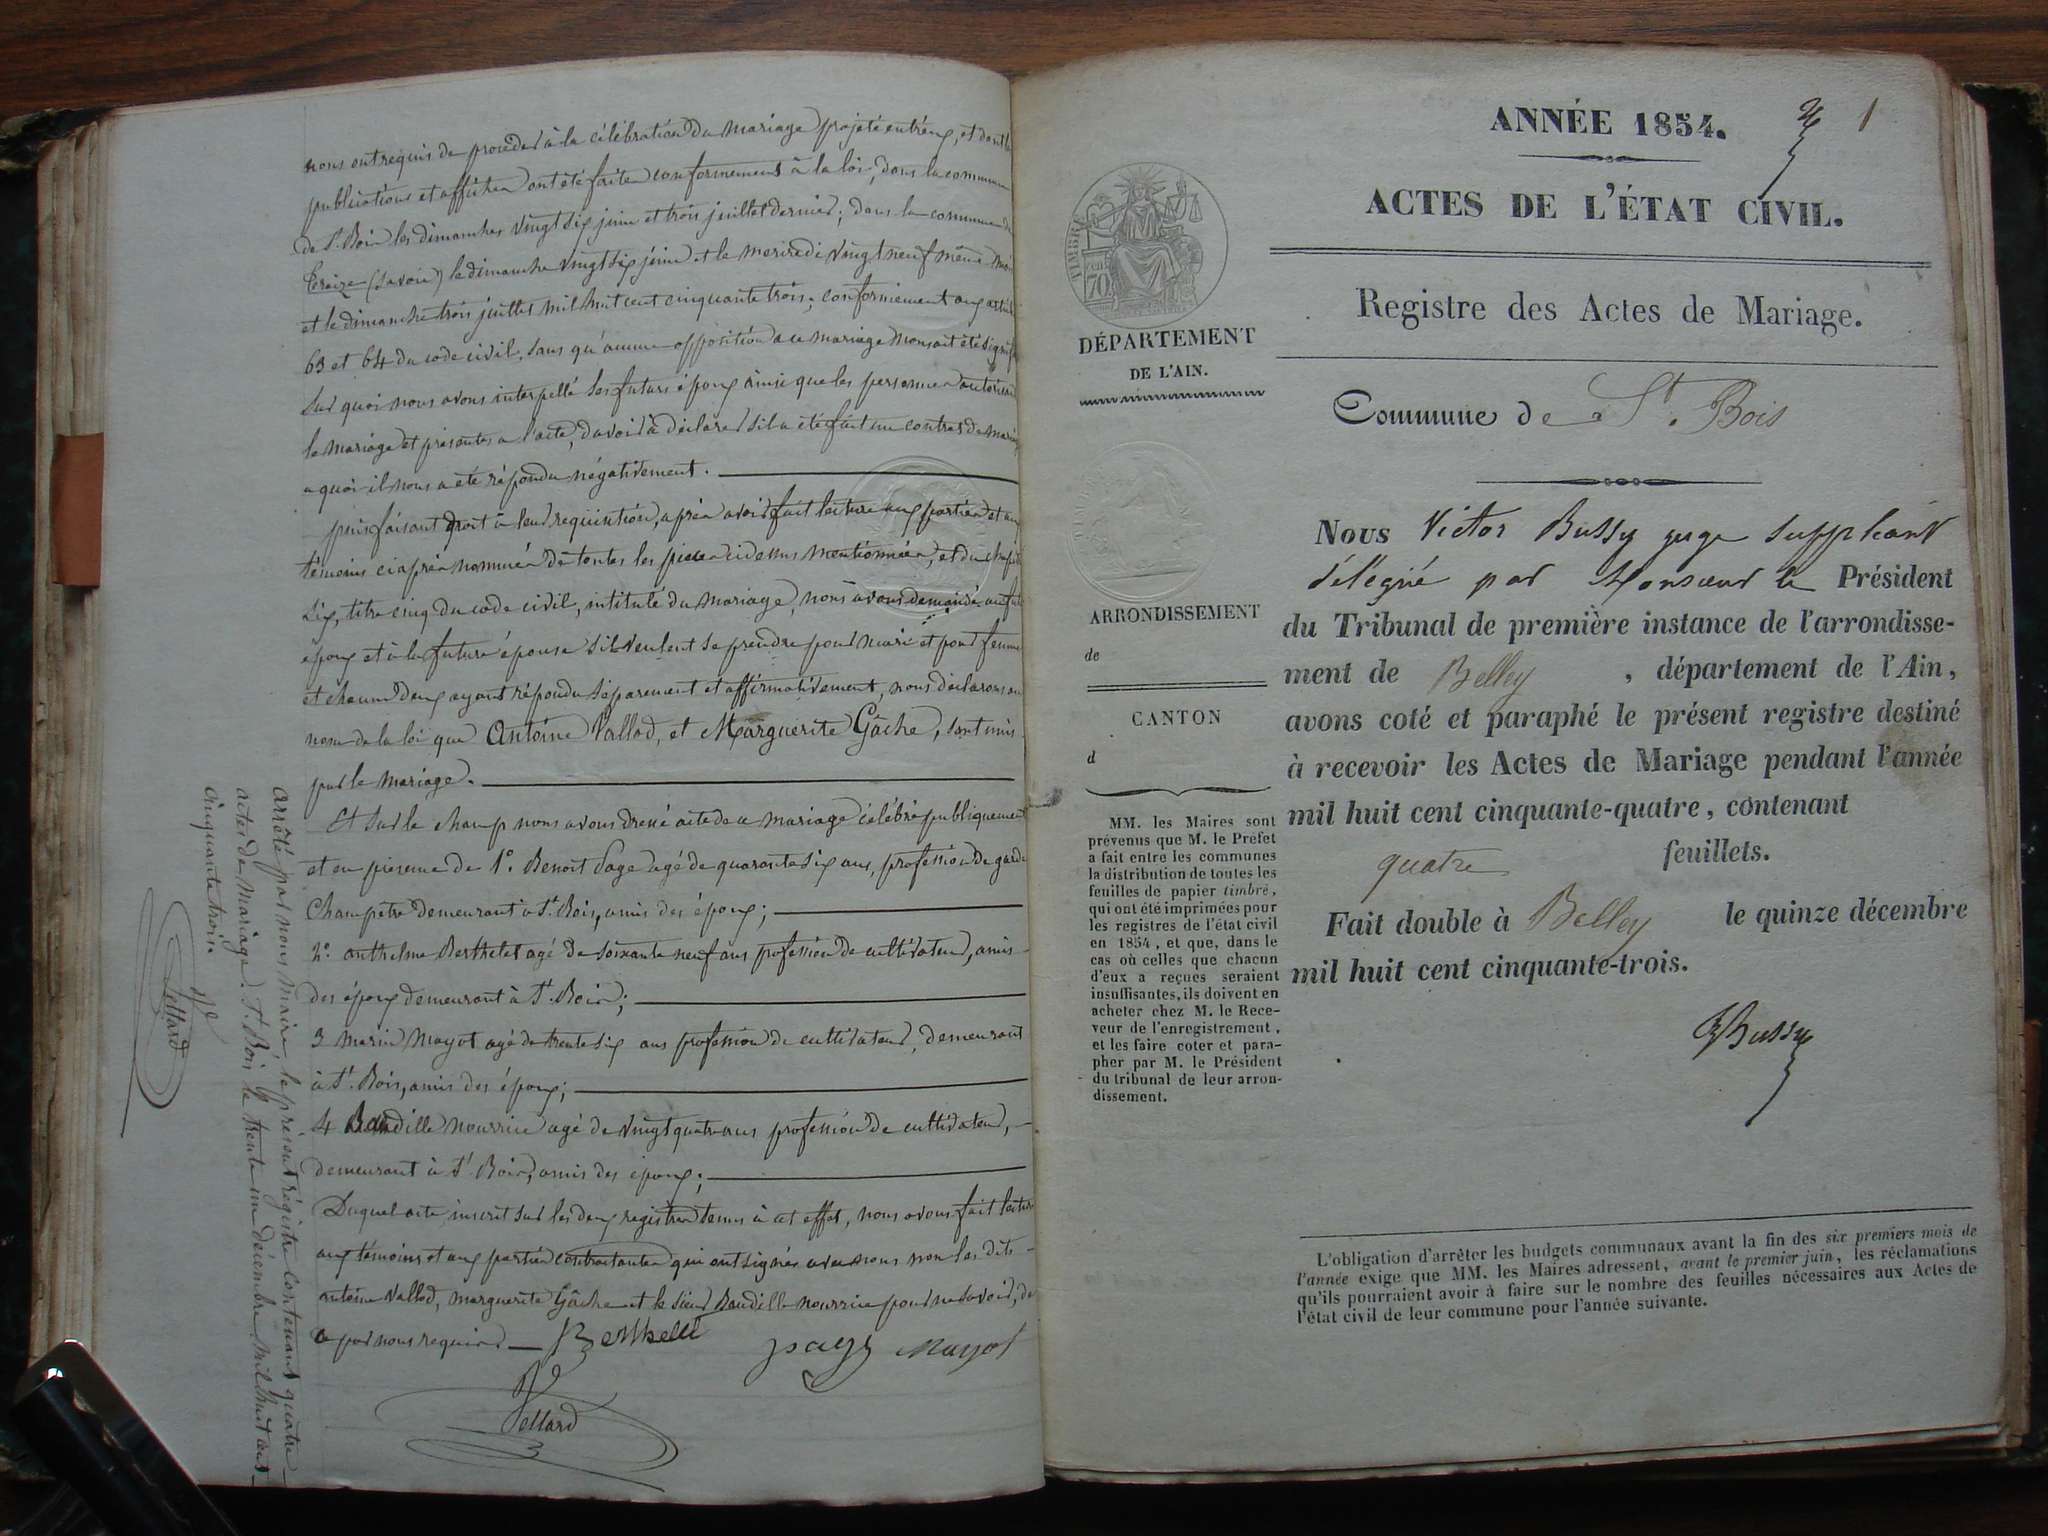 nous ont requis de procéder à la célébration du mariage projeté entr'eux, et dont les
publications et affiches ont été faites conformement à la loi, dans la commune
de St. Bois les dimanches vingt six juin et trois juillet dernier; dans la commune de
(Savoie) le dimanche vingt six juin et le mercredi vingt neuf même mois
et le dimanche trois juillet mil huit cent cinquante trois, conformement aux articles
63 et 64 du code civil, sans qu'aucune opposition a ce mariage nous ait été signifiée
sur quoi nous avons interpellé les futurs époux ainsi que les personnes autorisant
le mariage et présentes a l'acte, d'avoir à déclarer s'il a été fait un contrat de mariage
a quoi il nous a été répondu négativement.
puis faisant droit à leur requisition, après avoir fait lecture aux parties et aux
témoins ciaprès nommés de toutes les pièces cidessus mentionnées, et du chapitre
six, titre cinq du code civil, intitulé du mariage, nous avons demandé au futur
époux et à la future épouse s'ils veulent se prendre pour mari et pour femme
et chacun d'eux ayant répondu séparement et affirmativement, nous déclarons au
nom de la loi que Antoine Vallod, et Marguerite Gâche, sont unis
par le mariage.
Et sur le champ nous avons dressé acte de ce mariage célébré publiquement
et en présence de 1º. Benoit Page agé de quarante six ans, profession de garde
Champetre demeurant à St. Bois, amis des époux;
2º. anthelme Berthelet agé de soixante neuf ans profession de cultivateur, amis
des époux demeurant à St. Bois;
3 marin Mayot agé de trente six ans profession de cultivateur, demeurant
à St. Bois, amis des époux;
4 Baudille nourrice agé de vingt quatre ans profession de cultivateur,
demeurant à St. Bois, amis des époux;
Duquel acte, inscrit sur les deux registres tenus à cet effet, nous avons fait lecture
aux témoins et aux parties contractantes qui ont signés avec nous non les dits
antoine Vallod, marguerite Gâche et le sieur Baudille nourrice pour ne savoir, de
ce par nous requis
page Mayot
Arrêté par nous maire, le présent régistre contenant quatre
actes de mariage. St. Bois le trente un décembre mil huit cent
cinquante trois.
ANNÉE 1854.
1
ACTES DE L'ÉTAT CIVIL.
Registre des Actes de Mariage.
TIMBRE
70
DÉPARTEMENT
DE L'AIN.
ARRONDISSEMENT
de
CANTON
d
MM. les Maires sont
prévenus que M. le Préfet
a fait entre les communes
la distribution de toutes les
feuilles de papier timbré,
qui ont été imprimées pour
les registres de l'état civil
en 1854, et que, dans le
cas où celles que chacun
d'eux a reçues seraient
insuffisantes, ils doivent en
acheter chez M. le Rece-
veur de l'enregistrement,
et les faire coter et para-
pher par M. le Président
du tribunal de leur arron-
dissement.
Commune de St. Bois
Nous Victor Bussy juge suppléant
délégué par Monsieur le Président
du Tribunal de première instance de l'arrondisse-
ment de Belley, département de l'Ain,
avons coté et paraphé le présent registre destiné
à recevoir les Actes de Mariage pendant l'année
mil huit cent cinquante-quatre, contenant
quatre feuillets.
Fait double à Belley le quinze décembre
mil huit cent cinquante-trois.
Bussy
L'obligation d'arrêter les budgets communaux avant la fin des six premiers mois de
l'année exige que MM. les Maires adressent, avant le premier juin, les réclamations
qu'ils pourraient avoir à faire sur le nombre des feuilles nécessaires aux Actes de
l'état civil de leur commune pour l'année suivante.